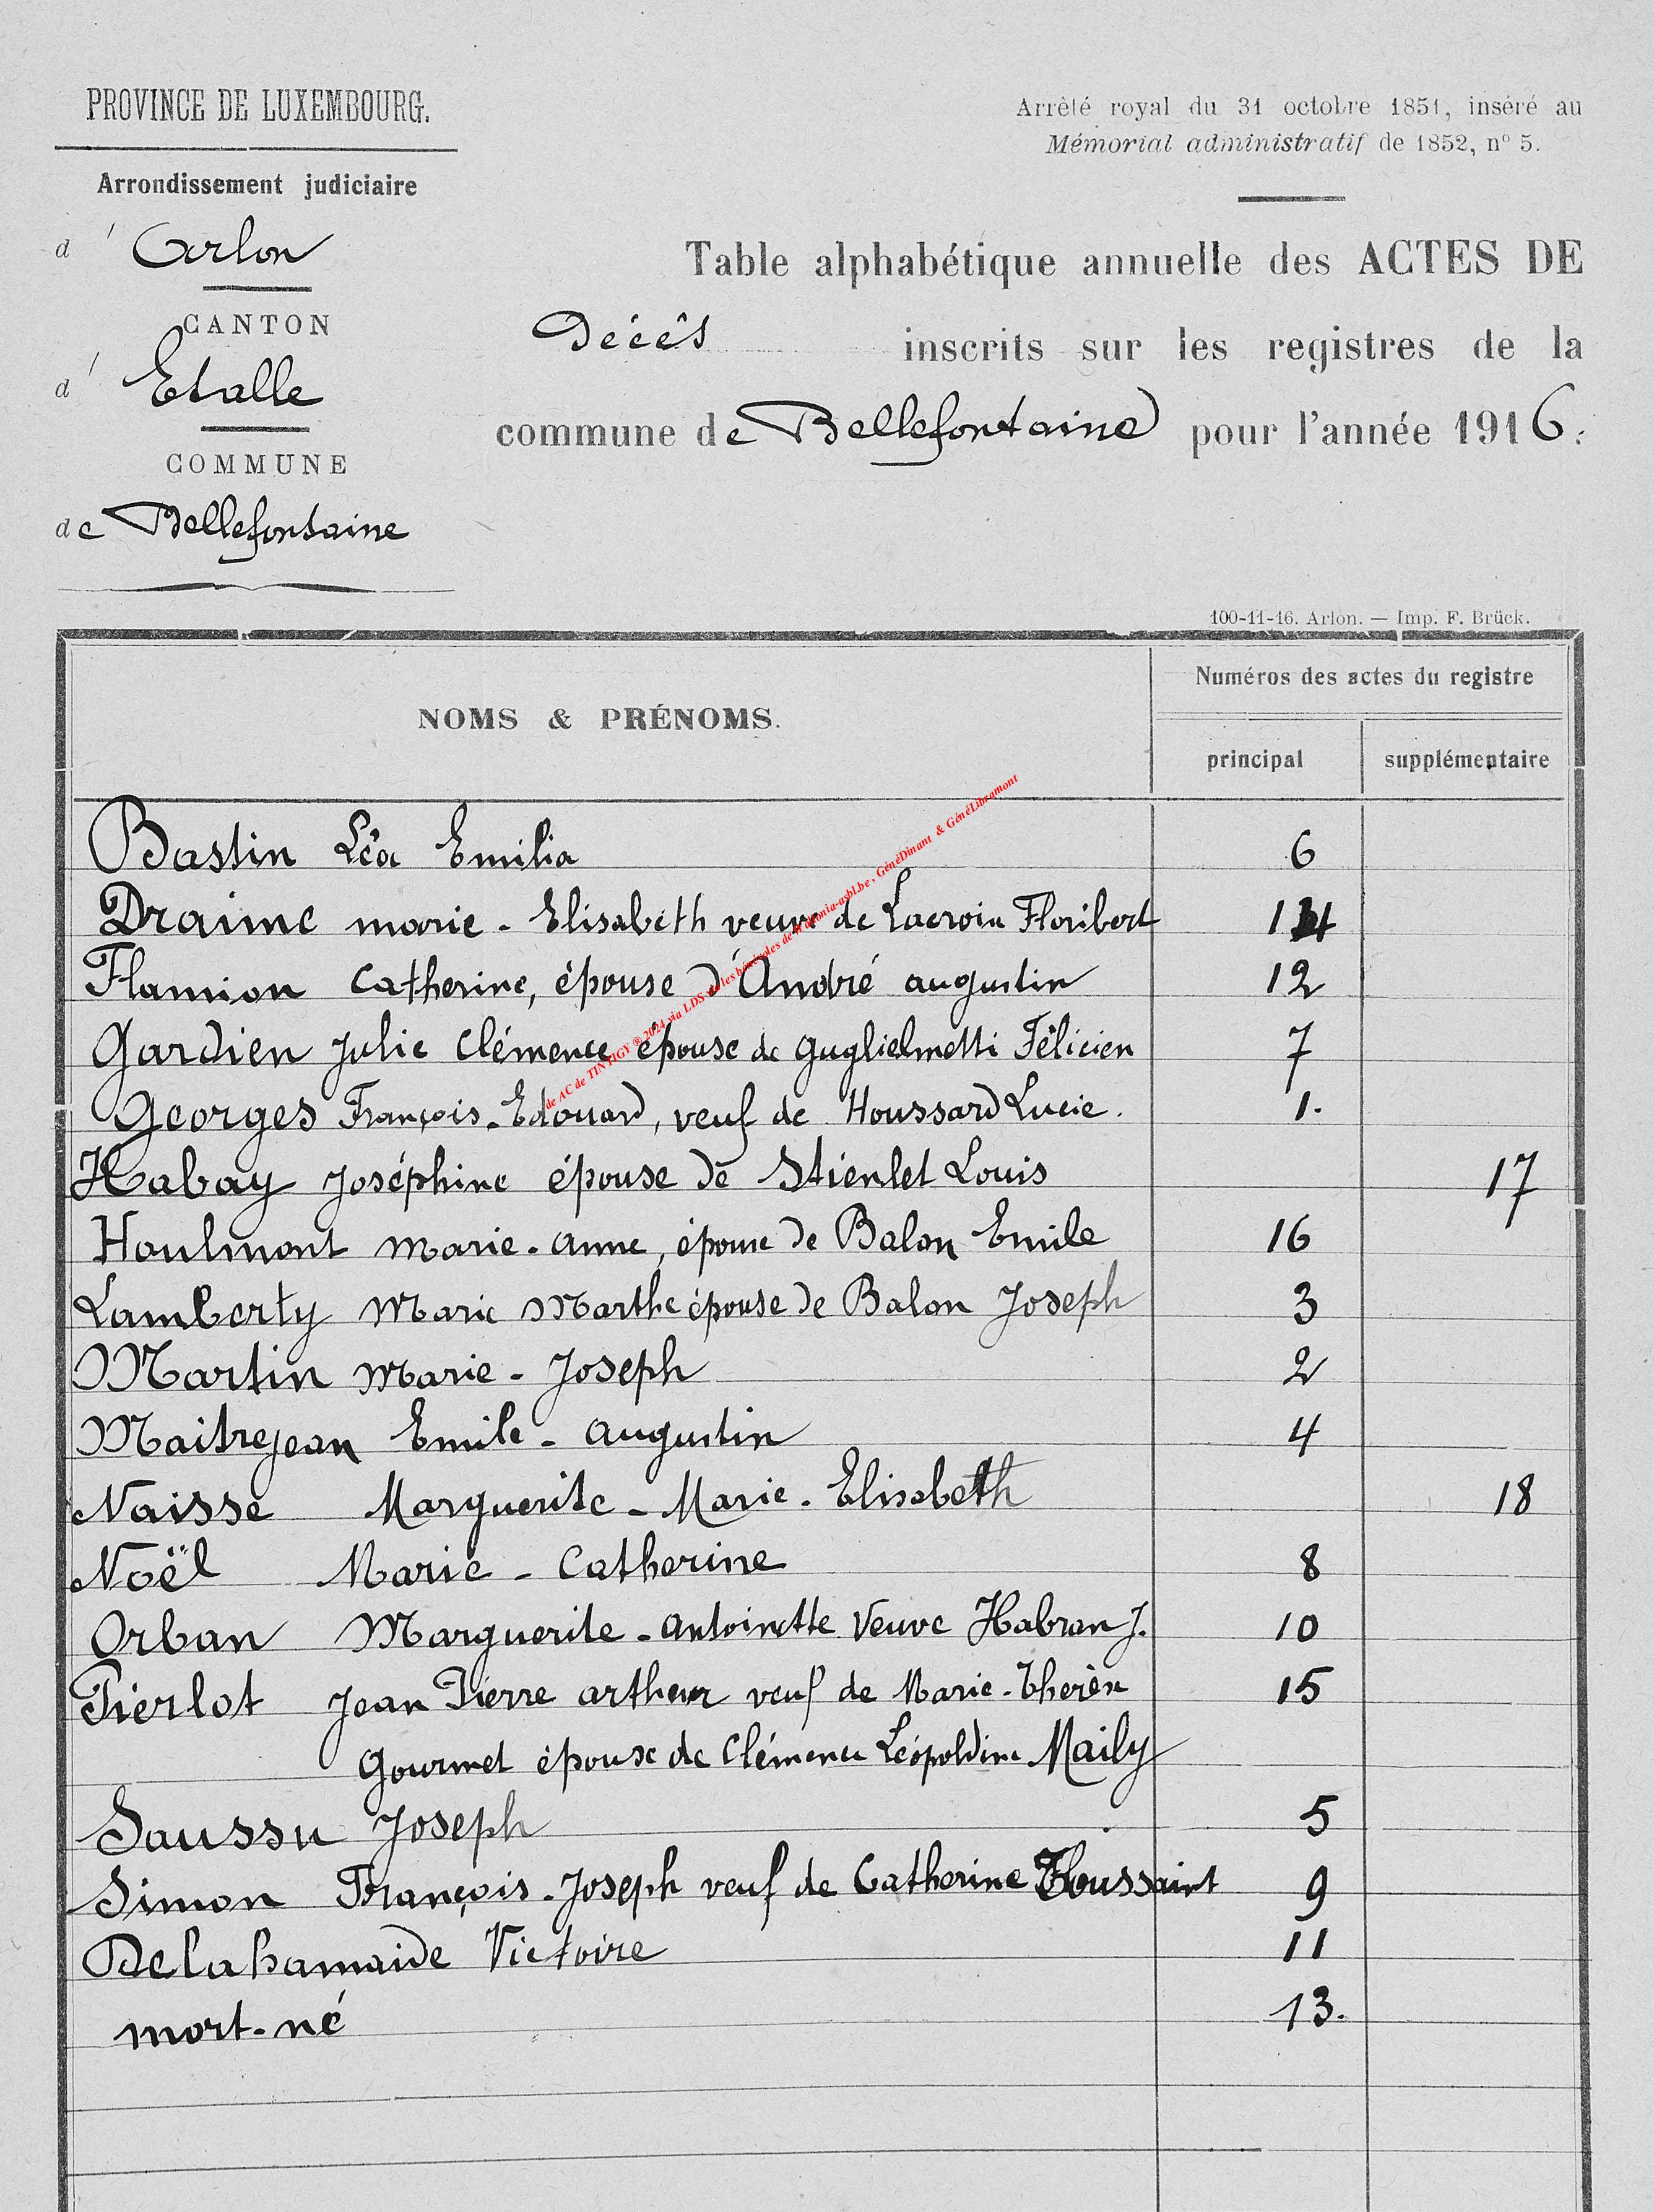 PROVINCE DE LUXEMBOURG.
Arrondissement judiciaire
d' Arlon
CANTON
d' Etalle
COMMUNE
de Bellefontaine
Arrêté royal du 31 octobre 1851, inséré au
Mémorial administratif de 1852, n° 5.
Table alphabétique annuelle des ACTES DE
Décès inscrits sur les registres de la
commune de Bellefontaine pour l'année 1916.
100-11-16. Arlon. — Imp. F. Brück.
NOMS & PRÉNOMS.
Numéros des actes du registre
principal supplémentaire
Bastin Léa Emilia 6
Draime marie - Elisabeth veuve de Lacroix Floribert 14
Flamion Catherine, épouse d'André augustin 12
Gardien Julie Clémence épouse de Guglielmetti Félicien 7
Georges François-Edouard, veuf de Houssard Lucie. 1.
Habay Joséphine épouse de Stienlet Louis 17
Houlmont Marie-Anne, épouse de Balon Emile 16
Lamberty Marie Marthe épouse de Balon Joseph 3
Martin Marie - Joseph 2
Maitrejean Emile - Augustin 4
Naisse Marguerite - Marie - Elisabeth 18
Noël Marie - Catherine 8
Orban Marguerite - Antoinette Veuve Habran J. 10
Pierlot Jean Pierre arthur veuf de Marie-Thérèse 15
Gourmet épouse de Clémence Léopoldine Maily
Saussu Joseph 5
Simon François-Joseph veuf de Catherine Toussaint 9
Delahamaide Victoire 11
mort-né 13.
de AC de TINTIGY ® 2024 via LDS les bénévoles de asbl.be, GénéDinant & GénéLibramont